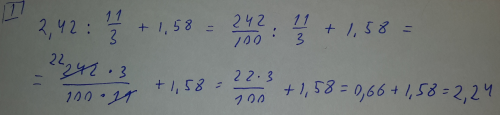 1
2,42 : 11/3 + 1,58 = 242/100 : 11/3 + 1,58 =
= 22 242 · 3 / 100 · 11 + 1,58 = 22 · 3 / 100 + 1,58 = 0,66 + 1,58 = 2,24